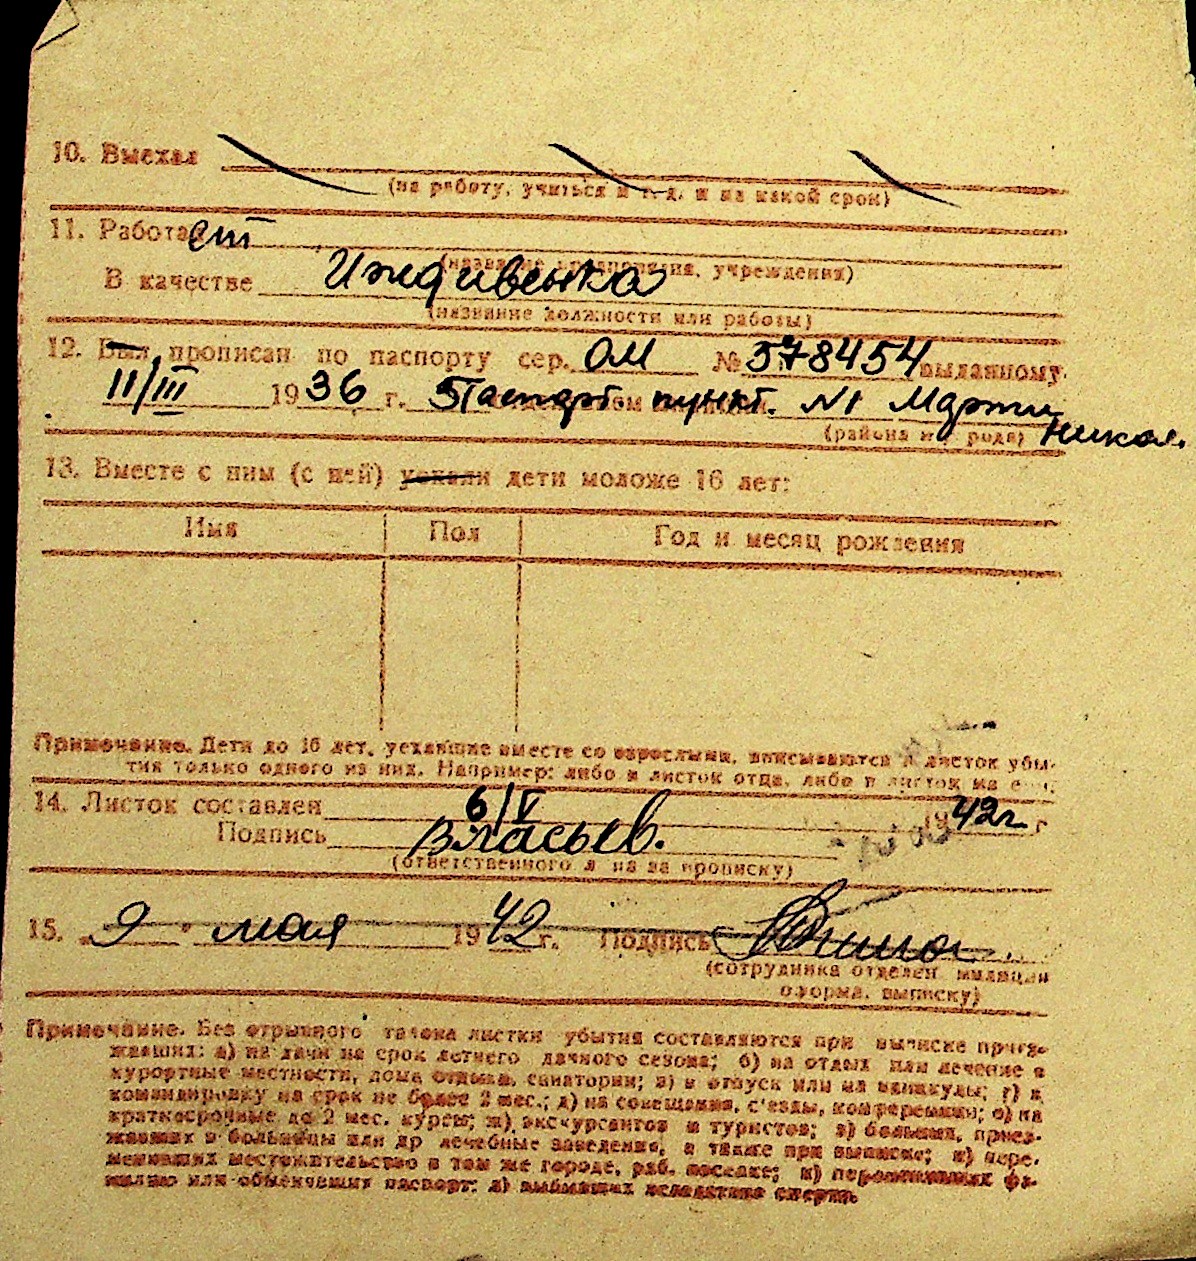 10. Выехал
(на работу, учиться и т. д. и на какой срок)
11. Работает
(название предприятия, учреждения)
В качестве Иждивенка
(название должности или работы)
12. Был прописан по паспорту сер. ОМ № 578454 выданному
II/III 1936 г. Паспорт. пункт. №1
(района и города) Никол.
13. Вместе с ним (с ней) уехали дети моложе 16 лет:
Имя Пол Год и месяц рождения
Примечание. Дети до 16 лет, уехавшие вместе со взрослыми, вписываются в листок убы-
тия только одного из них. Например: либо в листок отца, либо в листок матери.
14. Листок составлен 6/V 1942г. г
Подпись Власьев.
(ответственного лица за прописку)
15. „9" мая 1942 г. Подпись
(сотрудника отделен. милиции
оформл. выписку)
Примечание. Без отрывного талона листки убытия составляются при выписке приез-
жавших: а) на дачи на срок летнего дачного сезона; б) на отдых или лечение в
курортные местности, дома отдыха, санатории; в) в отпуск или на каникулы; г) в
командировку на срок не более 2 мес.; д) на совещания, с'езды, конференции; е) на
краткосрочные до 2 мес. курсы; ж) экскурсантов и туристов; з) больных, приез-
жавших в больницы или др лечебные заведения, а также при выписке; и) пере-
менивших местожительство в том же городе, раб. поселке; к) переменивших фа-
милию или обменявших паспорт; л) выбывших вследствие смерти.